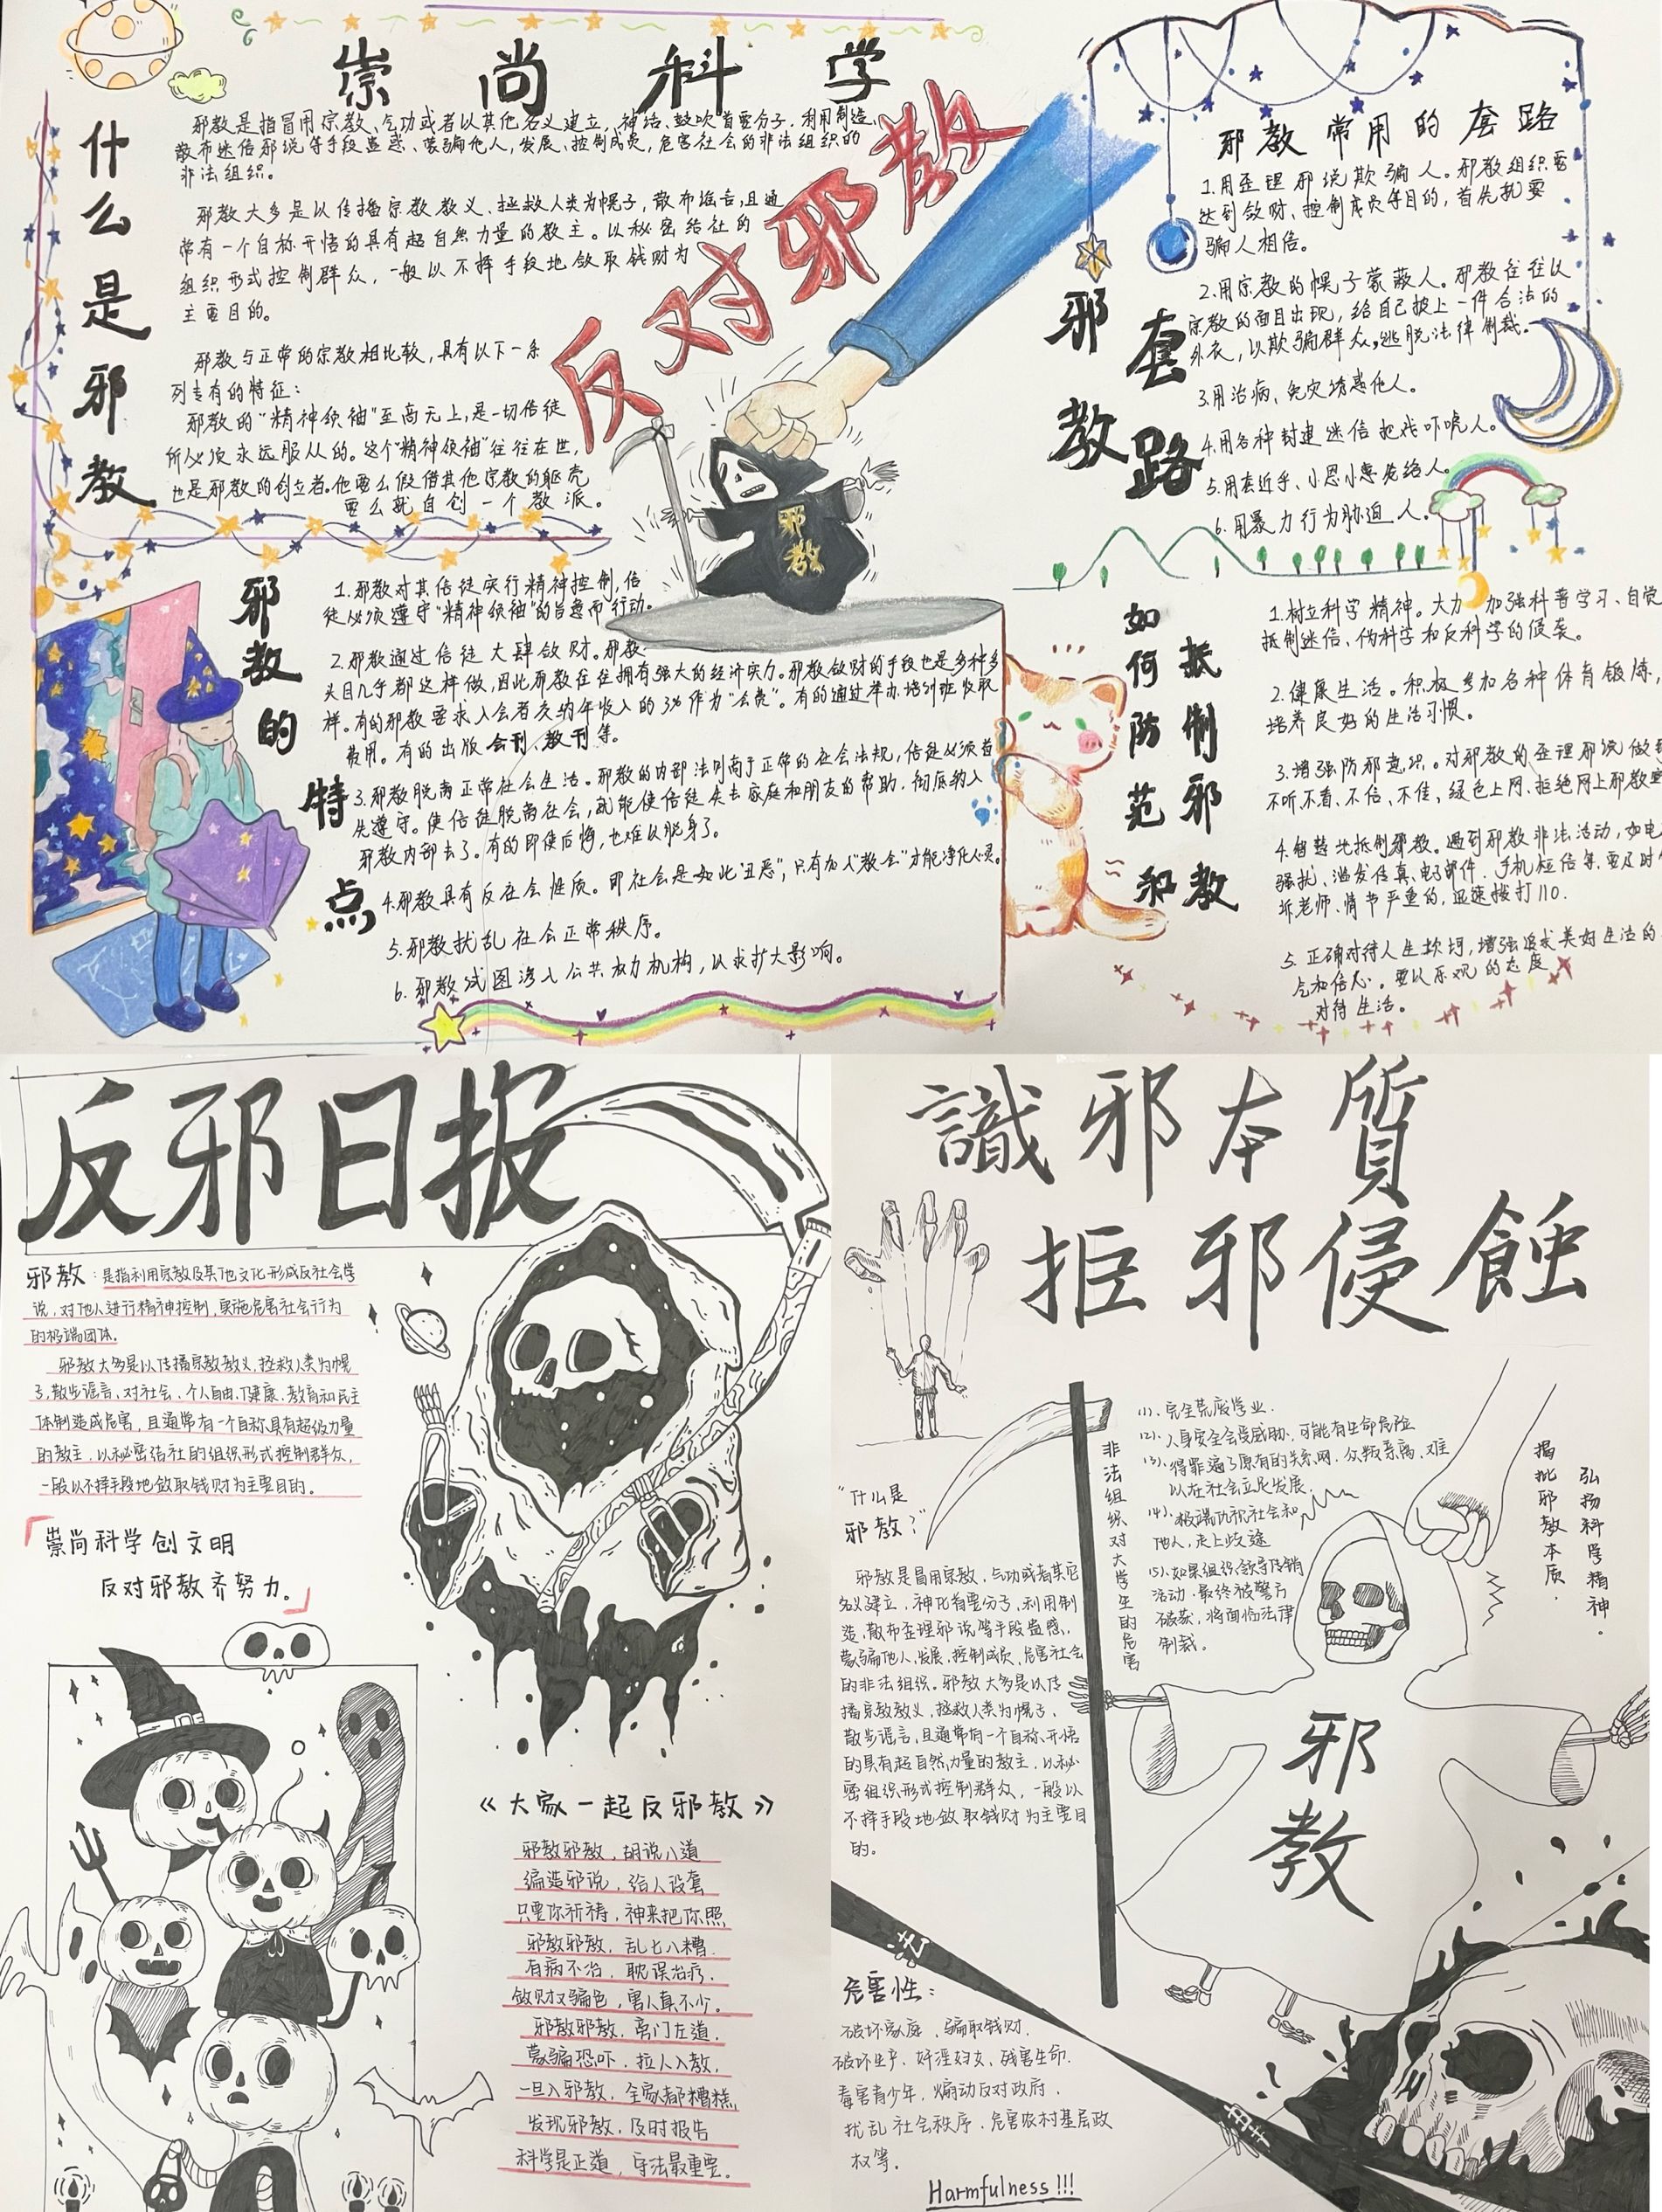 崇尚科学
反对邪教
什么是邪教
邪教是指冒用宗教、气功或者以其他名义建立，神话、鼓吹首要分子，利用制造、
散布迷信邪说等手段蛊惑、蒙骗他人，发展、控制成员，危害社会的非法组织的
非法组织。
邪教大多是以传播宗教教义、拯救人类为幌子，散布谣言，且通
常有一个自称开悟的具有超自然力量的教主。以秘密结社的
组织形式控制群众，一般以不择手段地敛取钱财为
主要目的。
邪教与正常的宗教相比较，具有以下一条
列专有的特征：
邪教的“精神领袖”至高无上，是一切信徒
所必须永远服从的。这个“精神领袖”往往在世，
也是邪教的创立者。他要么假借其他宗教的躯壳
要么就自创一个教派。
邪教
邪教的特点
1.邪教对其信徒实行精神控制，信
徒必须遵守“精神领袖”的旨意而行动。
2.邪教通过信徒大肆敛财。邪教
头目几乎都这样做，因此邪教往往拥有强大的经济实力。邪教敛财的手段也是多种多
样。有的邪教要求入会者交纳年收入的3%作为“会费”。有的通过举办培训班收取
费用。有的出版会刊、教刊等。
3.邪教脱离正常社会生活。邪教的内部法则高于正常的社会法规，信徒必须首
先遵守。使信徒脱离社会，就能使信徒失去家庭和朋友的帮助，彻底的入
邪教内部去了。有的即使后悔，也难以脱身了。
4.邪教具有反社会性质。即社会是如此“丑恶”，只有加入“教会”才能净化心灵。
5.邪教扰乱社会正常秩序。
6.邪教试图渗入公共权力机构，以求扩大影响。
邪教套路
邪教常用的套路
1.用歪理邪说欺骗人。邪教组织要
达到敛财、控制成员等目的，首先就要
骗人相信。
2.用宗教的幌子蒙蔽人。邪教往往以
宗教的面目出现，给自己披上一件合法的
外衣，以欺骗群众，逃脱法律制裁。
3.用治病、免灾诱惑他人。
4.用各种封建迷信把戏吓唬人。
5.用套近乎、小恩小惠笼络人。
6.用暴力行为胁迫人。
如何防范和
抵制邪教
1.树立科学精神。大力加强科普学习、自觉
抵制迷信、伪科学和反科学的侵袭。
2.健康生活。积极参加各种体育锻炼，
培养良好的生活习惯。
3.增强防邪意识。对邪教的歪理邪说做到
不听不看、不信、不传、绿色上网、拒绝网上邪教
4.智慧地抵制邪教。遇到邪教非法活动，如电
骚扰、滥发传真、电子邮件、手机短信等，要及时
诉老师、情节严重的，迅速拨打110.
5.正确对待人生坎坷，增强追求美好生活的
气和信心。要以乐观的态度
对待生活。
反邪日报
邪教：是指利用宗教及其他文化形成反社会学
说，对他人进行精神控制，实施危害社会行为
的极端团体。
邪教大多是以传播宗教教义，拯救人类为幌
子，散步谣言、对社会、个人自由、健康、教育和民主
体制造成危害，且通常有一个自称具有超级力量
的教主，以秘密结社的组织形式控制群众，
一般以不择手段地敛取钱财为主要目的。
崇尚科学创文明
反对邪教齐努力。
《大家一起反邪教》
邪教邪教，胡说八道
编造邪说，给人设套
只要你祈祷，神来把你照，
邪教邪教，乱七八糟.
有病不治，耽误治疗，
敛财又骗色，害人真不少。
邪教邪教，旁门左道，
蒙骗恐吓，拉人入教，
一旦入邪教，全家都糟糕，
发现邪教，及时报告
科学是正道，守法最重要。
識邪本質
拒邪侵蝕
“什么是
邪教？”
邪教是冒用宗教，气功或者其它
名义建立，神化首要分子，利用制
造、散布歪理邪说等手段蛊惑，
蒙骗他人，发展，控制成员，危害社会
的非法组织。邪教大多是以传
播宗教教义，拯救人类为幌子，
散步谣言，且通常有一个自称开悟
的具有超自然力量的教主，以秘
密组织形式控制群众，一般以
不择手段地敛取钱财为主要目
的。
非法组织对大学生的危害
(1)、完全荒废学业.
(2)、人身安全会受威胁，可能有生命危险
(3)、得罪遍了原有的关系网，众叛亲离，难
以在社会立足发展.
(4)、极端仇视社会和
他人，走上歧途
(5)、如果组织领导传销
活动，最终被警方
破获，将面临法律
制裁。
揭批邪教本质，
弘扬科学精神.
邪教
法
危害性：
破坏家庭，骗取钱财.
破坏生产、奸淫妇女、残害生命.
毒害青少年，煽动反对政府，
扰乱社会秩序，危害农村基层政
权等.
Harmfulness!!!